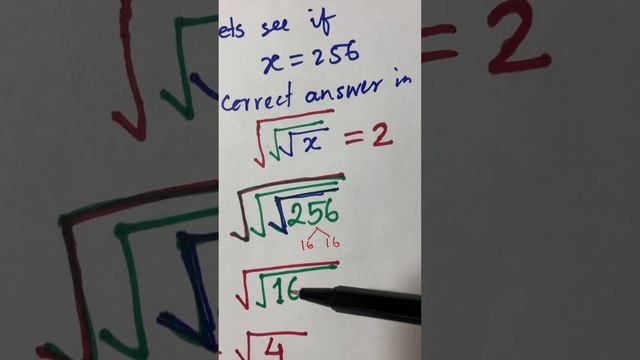 ets see if
x = 256
correct answer in
√√√x = 2
√√√256
16 16
√√16
√4
= 2